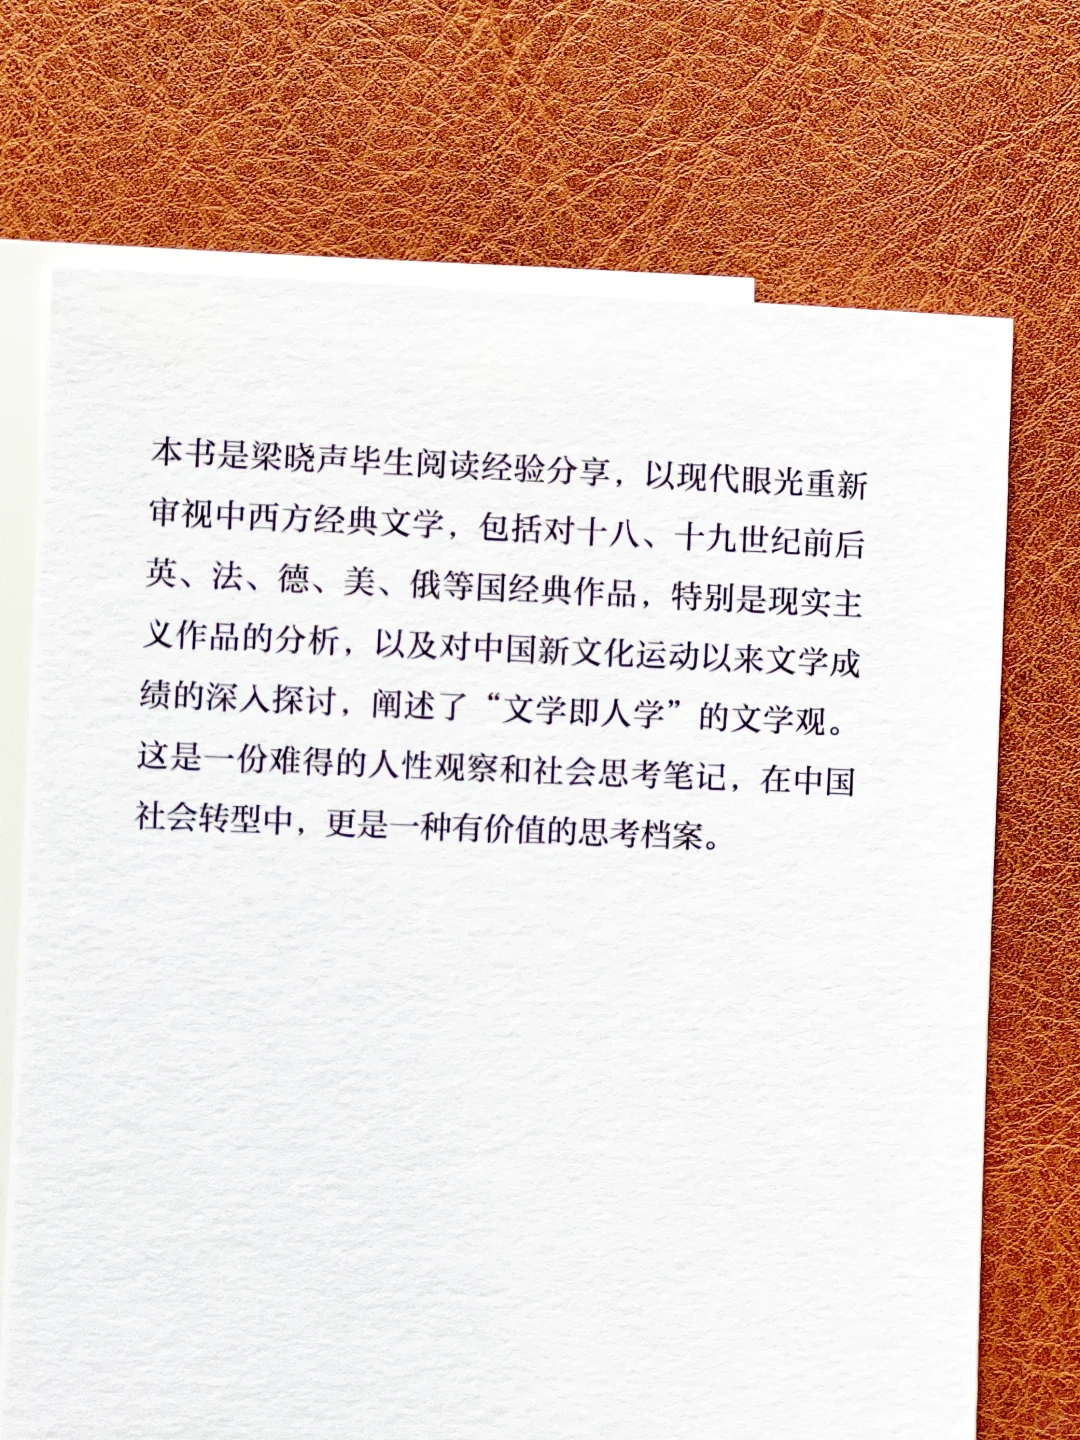 本书是梁晓声毕生阅读经验分享，以现代眼光重新
审视中西方经典文学，包括对十八、十九世纪前后
英、法、德、美、俄等国经典作品，特别是现实主
义作品的分析，以及对中国新文化运动以来文学成
绩的深入探讨，阐述了“文学即人学”的文学观。
这是一份难得的人性观察和社会思考笔记，在中国
社会转型中，更是一种有价值的思考档案。